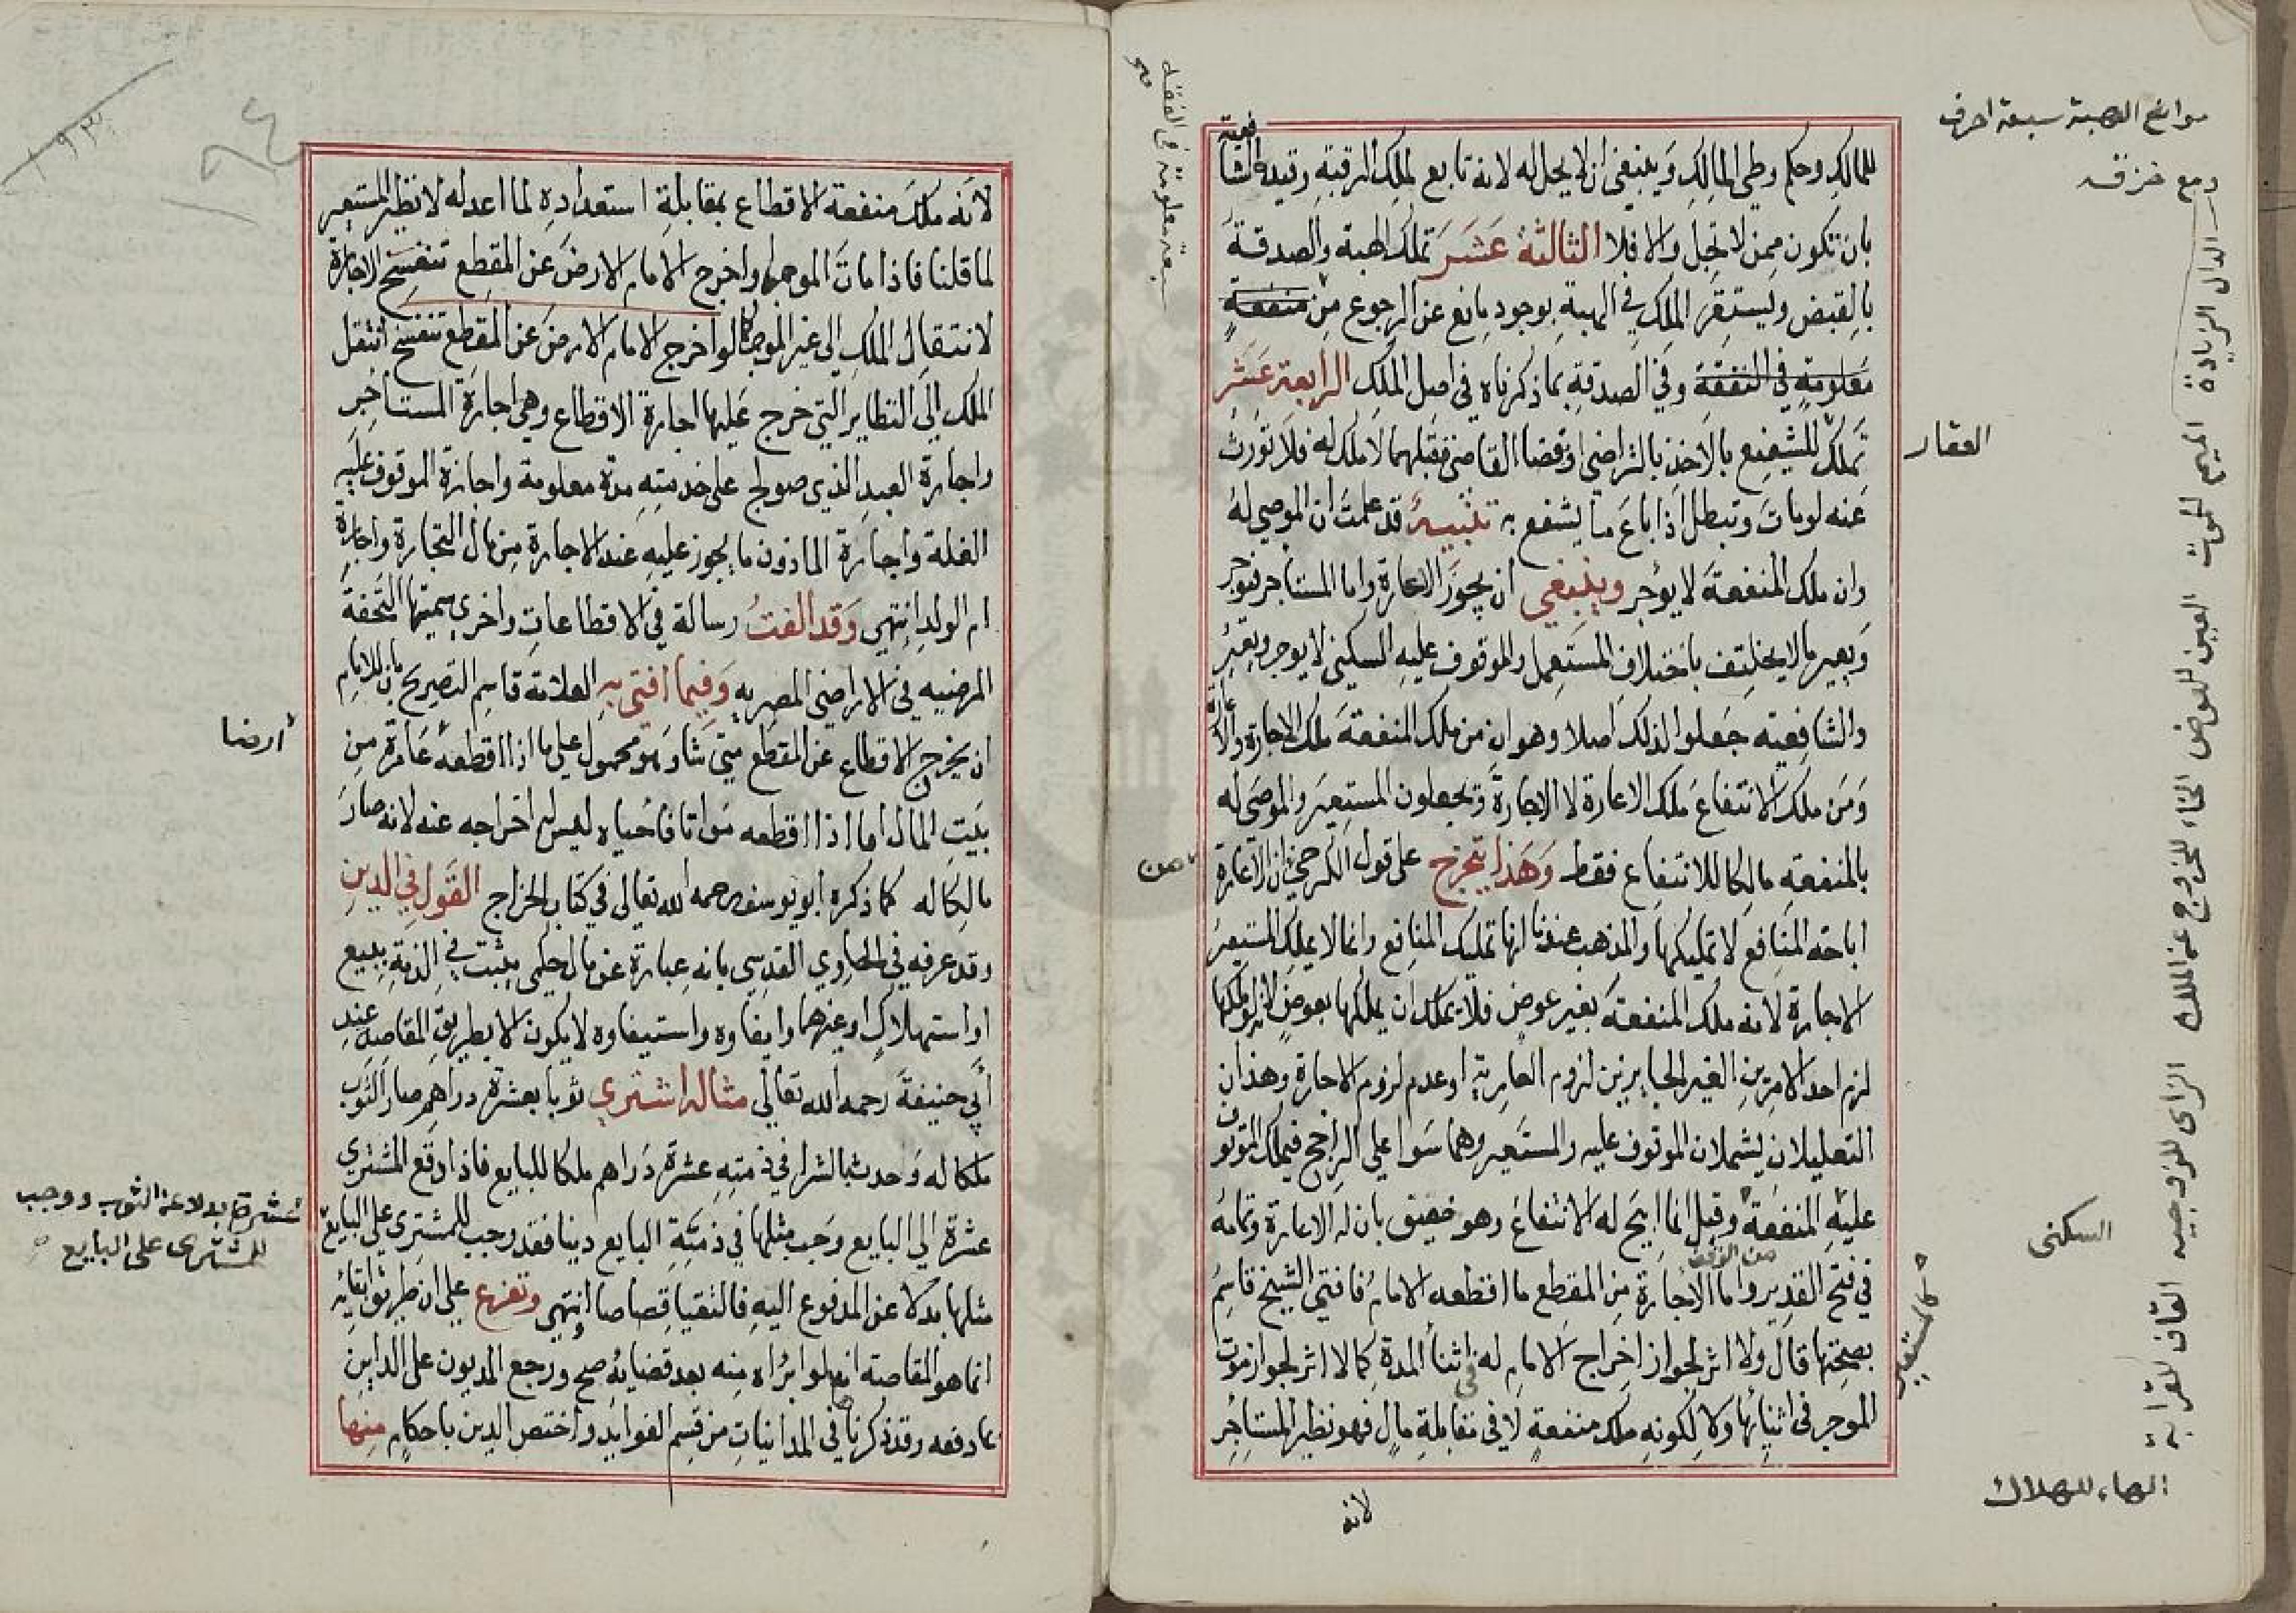 للمالك وحكم وطي المالك وينبغي ان لا يحل له لانه تابع لملك الرقبة وقيده الشافعية
بان تكون ممن لا تحبل والا فلا الثالثة عشر تملك الهبة والصدقة
بالقبض ويستقر الملك في الهبة بوجود مانع عن الرجوع من منفعة
معلومة في النفقة وفي الصدقة بما ذكرناه في اصل الملك الرابعة عشر
تملك للشفيع بالاخذ بالتراضي او قضا القاضي فقبلهما لا ملك له فلا تورث
عنه لو مات وتبطل اذا باع ما يشفع به تنبيه قد علمت ان الموصي له
وان ملك المنفعة لا يؤجر وينبغي ان يجوز الاعارة واما المستاجر فيوجر
ويعير ما لا يختلف باختلاف المستعمل والموقوف عليه السكني لا يوجر ويعير
والشافعية جعلوا لذلك اصلا وهو ان من ملك المنفعة ملك الاجارة والاعارة
ومن ملك الانتفاع ملك الاعارة لا الاجارة ويجعلون المستعير والموصي له
بالمنفعة مالكا للانتفاع فقط وهذا يتخرج على قول الكرخي من ان الاعارة
اباحة المنافع لا تمليكها والمذهب عندنا انها تمليك المنافع وانما لا يملك المستعير
الاجارة لانه ملك المنفعة بغير عوض فلا يملك ان يملكها بعوض لانه لو ملكها
لزم احد الامرين الغير الجايزين لزوم العارية او عدم لزوم الاجارة وهذان
التعليلان يشملان الموقوف عليه والمستعير وهما سوا علي الراجح فيملك الموقوف
عليه المنفعة وقيل انما ابيح له الانتفاع وهو ضعيف بان له الاعارة وتمامه
في فتح القدير واما الاجارة من المقطع ما اقطعه الامام فافتي الشيخ قاسم
بصحتها قال ولا اثر لجواز اخراج الامام له في اثنا المدة كما لا اثر لجواز موت
الموجر في اثنائها ولا لكونه ملك منفعة لا في مقابلة مال فهو نظير المستاجر
لانه
موانع الهبة سبعة احرف
دمع خزقه
الدال الزيادة الميم الموت العين للعوض الخاء للخروج عن الملك الزاى للزوجيه القاف للقرابة
الهاء للهلاك
العقار
السكنى
كالمستعير
من الوقف
سبعة معلومة في الفقه
لانه ملك منفعة الاقطاع بمقابلة استعداده لما اعد له لا نظير المستعير
لما قلنا فاذا مات الموجر او اخرج الامام الارض عن المقطع تنفسخ الاجارة
لانتقال الملك الي غير الموجر كما لو اخرج الامام الارض عن المقطع تنفسخ انتقل
الملك الي النظاير التي خرج عليها اجارة الاقطاع وهي اجارة المستاجر
واجارة العبد الذي صولح على خدمته مدة معلومة واجارة الموقوف عليه
الغلة واجارة الماذون ما يجوز عليه عند الاجارة من مال التجارة واجارة
ام الولد انتهى وقد الفت رسالة في الاقطاعات واخري سميتها التحفة
المرضيه في الاراضي المصريه وفيما افتى به العلامة قاسم التصريح بان للامام
ان يخرج الاقطاع عن المقطع متي شا وهو محمول علي ما اذا اقطعه عامرة من
بيت المال اما اذا اقطعه مواتا فاحياه ليس له اخراجه عنه لانه صار
مالكا له كما ذكره ابو يوسف رحمه الله تعالى في كتاب الخراج القول في الدين
وقد عرفه في الحاوي القدسي بانه عبارة عن مال حكمى يثبت في الذمة ببيع
او استهلاك او غيرهما وايفاوه واستيفاوه لا يكون الا بطريق المقاصه عند
أبي حنيفة رحمه الله تعالي مثاله اشتري ثوبا بعشرة دراهم صار الثوب
ملكا له وحدث بالشرا في ذمته عشرة دراهم ملكا للبايع فاذا دفع المشتري
عشرة الي البايع وجب مثلها في ذمة البايع دينا فقد وجب للمشتري على البايع
مثلها بدلا عن المدفوع اليه فالتقيا قصاصا انتهى وتفرع علي ان طريق ايفائه
انما هو المقاصة انه لو ابراه منه بعد قضائه صح ورجع المديون على الداين
بما دفعه وقد ذكرناه في المداينات من قسم الفوايد واختص الدين باحكام منها
ارضا
عشرة بدلا عن الثوب ووجب
للمشترى على البايع
١٩٣
١٩٤